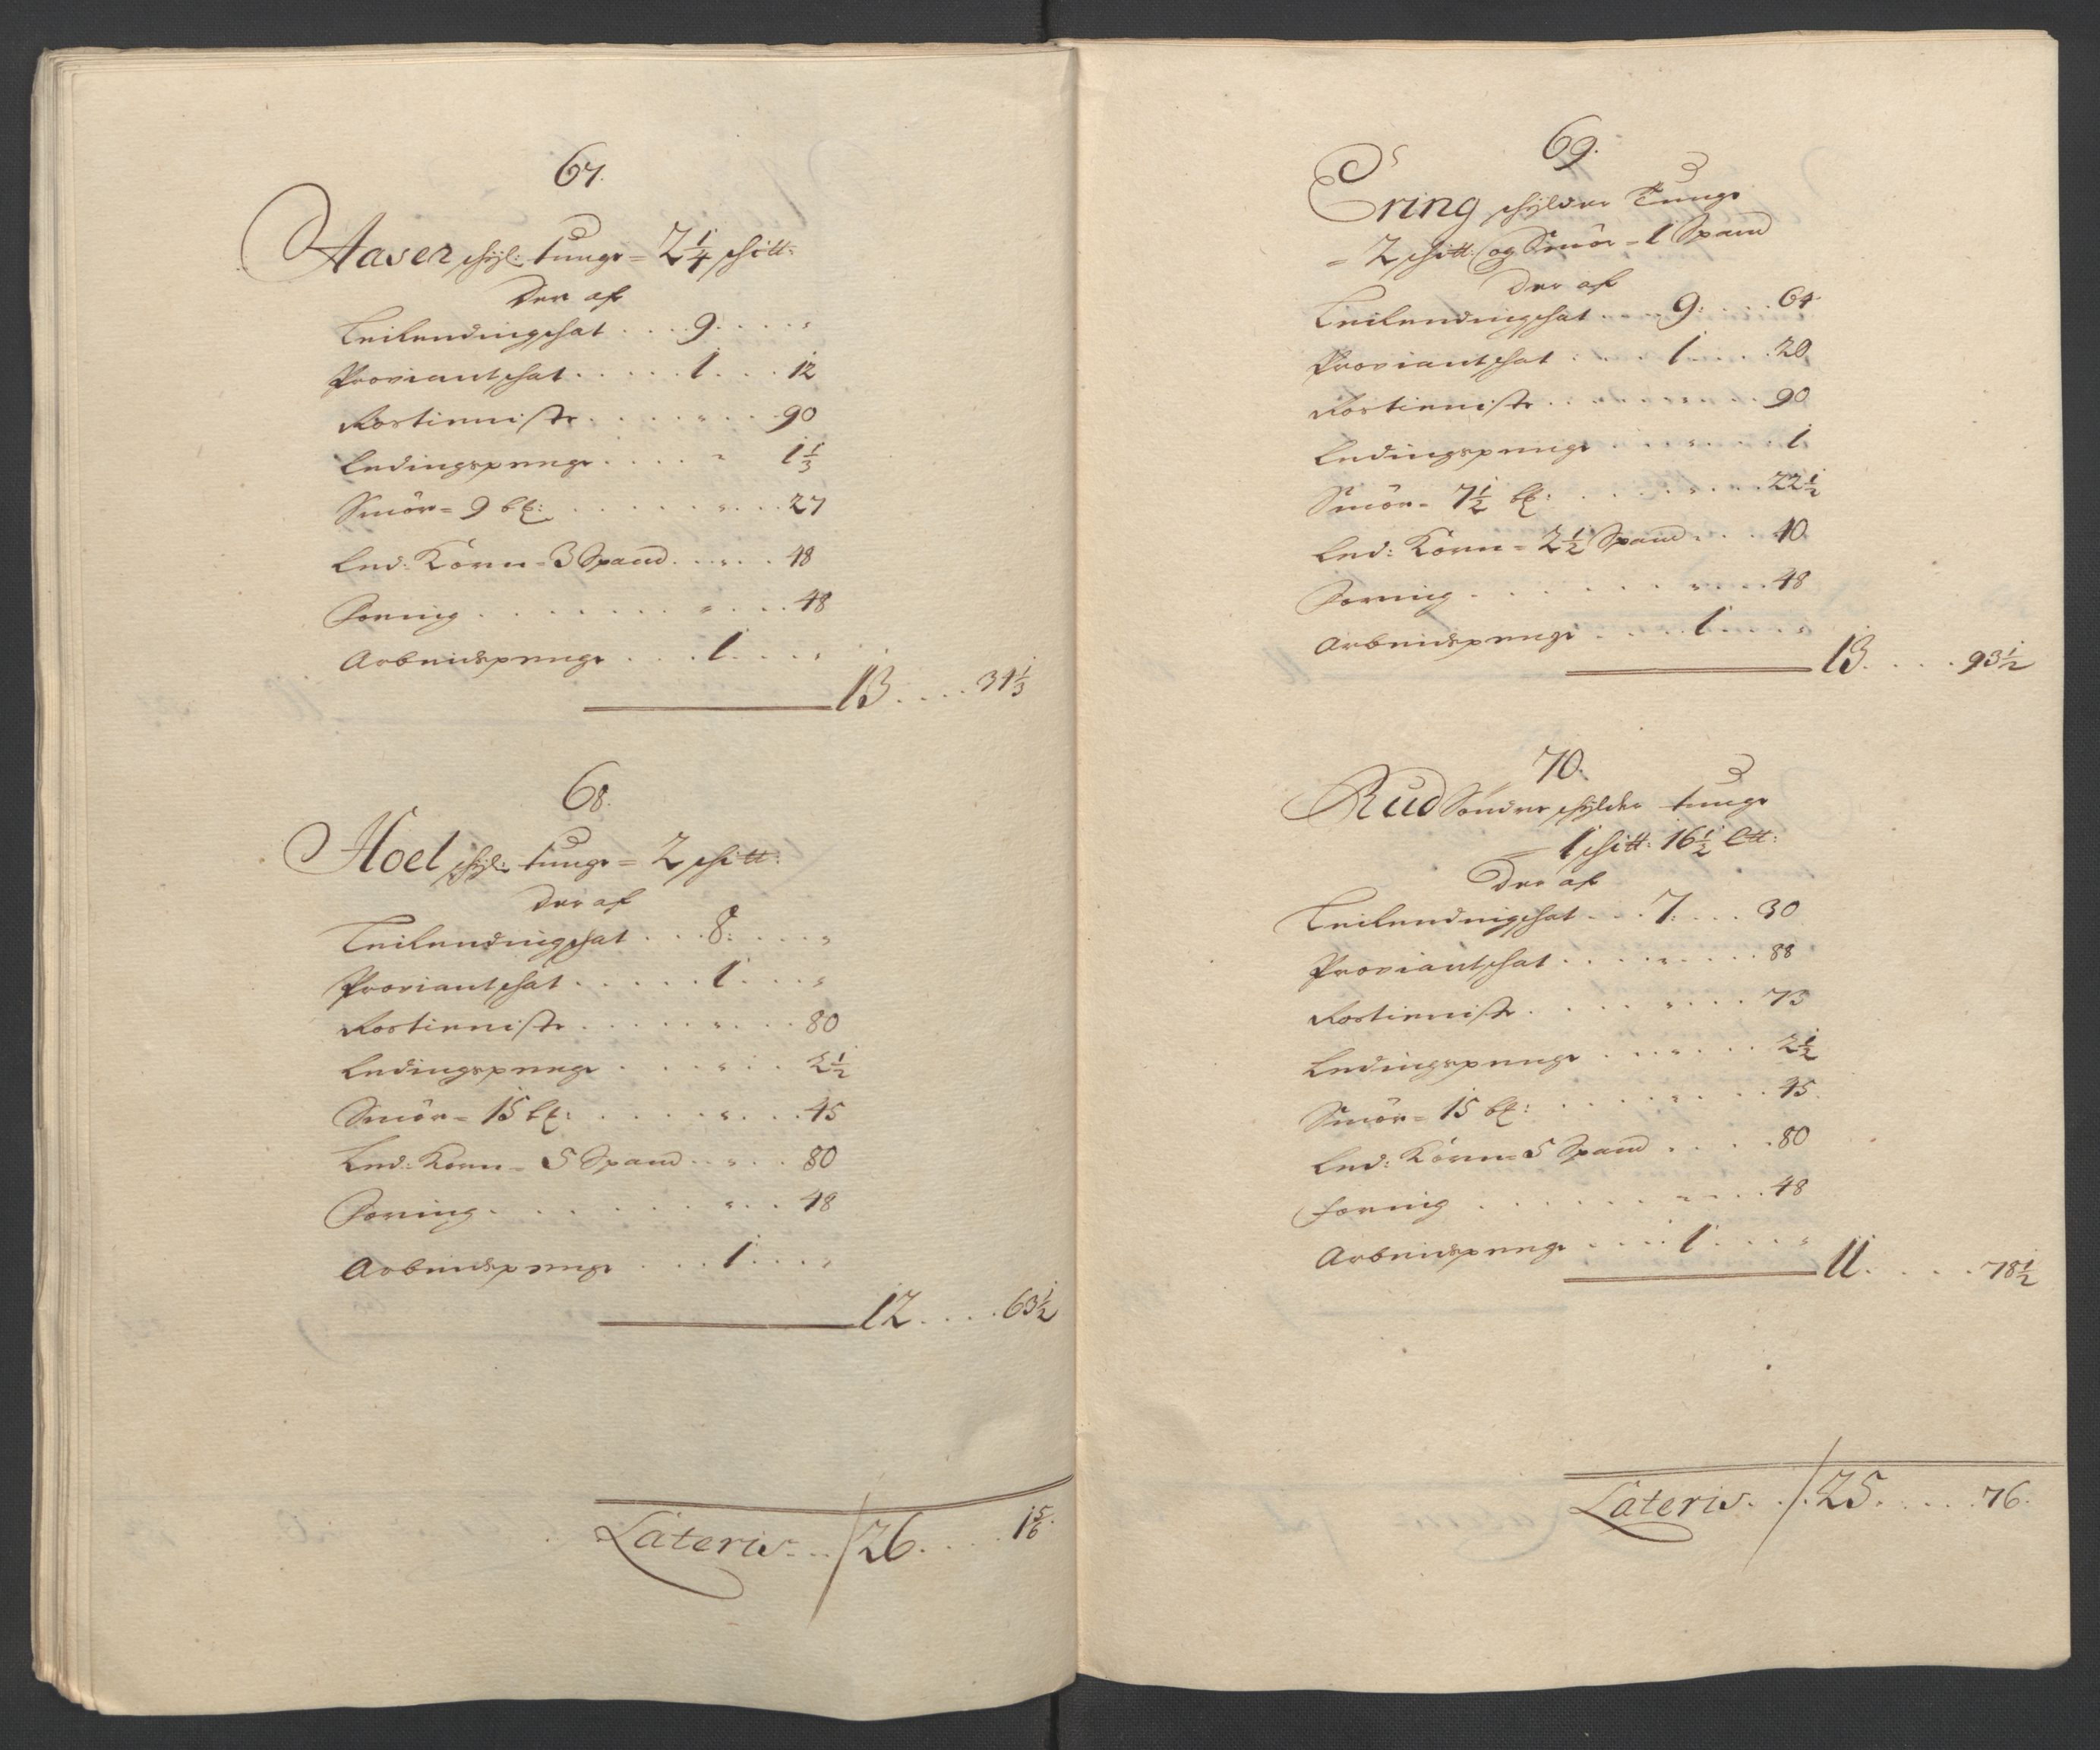 67.
Aaser schyl: tunge = 2 1/4 schitt:
Der af
Leilendingschat . . . . 9. . . . . "
Proviantschat . . . . . 1. . . . 12
Rostienniste . . . . . " . . . 90
Ledingspenge . . . . . " 1 1/3
Smör = 9 bℓ: . . . . . " . . . 27
Led: Körn = 3 Spand . . . " . . 48
Foring . . . . . . . " . . . 48
Arbeidspenge . . . . 1. . . . "
13. . . . 34 1/3
68.
Hoel schyl: tunge = 2 schitt:
Der af
Leilendingschat . . . 8: . . . "
Proviantschat . . . . . 1. . . . "
Rostienniste . . . . . " . . . 80
Ledingspenge . . . . " . . 2 1/2
Smör = 15 bℓ: . . . . " . . . 45
Led: Korn = 5 Spand . . " . . 80
Foring . . . . . . . " . . . 48
Arbeidspenge . . . . 1. . . . "
12. . . . 63 1/2
Lateris . . . / 26. . . . 1 5/6.
69.
Ering schylder Tunge
= 2 schitt: og Smör = 1 Spand
Der af
Leilendingschat . . . 9: . . . . 64
Proviantschat . . . . 1. . . . 20
Rostienniste . . . . . . . . 90
Ledingspenge . . . . . " . . . 1
Smör = 7 1/2 bℓ: . . . . . " . . . 22 1/2
Led: Körn = 2 1/2 Spand . . . 40
Foring . . . . . . . " . . . 48
Arbeidspenge . . . . 1. . . . "
13. . . . 93 1/2
70.
Rud Söndre schylder tunge
= 1 schitt: 16 1/2 ltt:
Der af
Leilendingschat . . . 7: . . . 30
Proviantschat . . . . " . . . . 88
Rostienniste . . . . . " . . . 73
Ledingspenge . . . " . . . 2 1/2
Smör = 15 bℓ: . . . . . " . . . 45.
Led: Körn = 5 Spand . . . . 80
Foring . . . . . . . " . . . 48
Arbeidspenge . . . . 1. . . . "
11. . . . . 78 1/2
Lateris . . . / 25. . . . . 76.